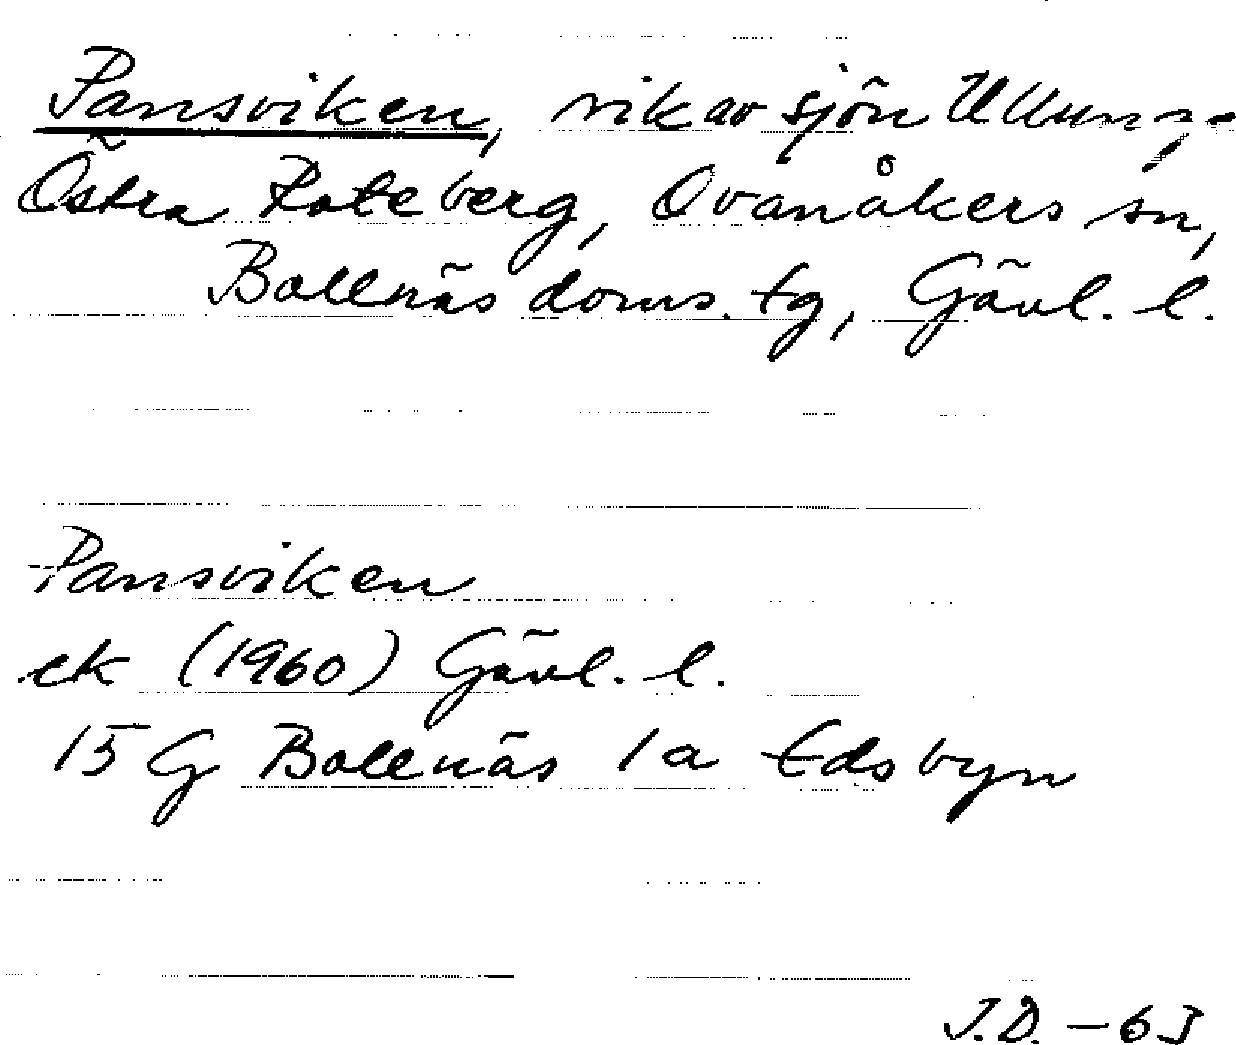 Pansviken, vik av sjön Ullung,
Östra Roteberg, Ovanåkers sn,
Bollnäs doms. tg, Gävl. l.
Pansviken
ek (1960) Gävl. l.
15 G Bollnäs 1a Edsbyn
J.D. – 63